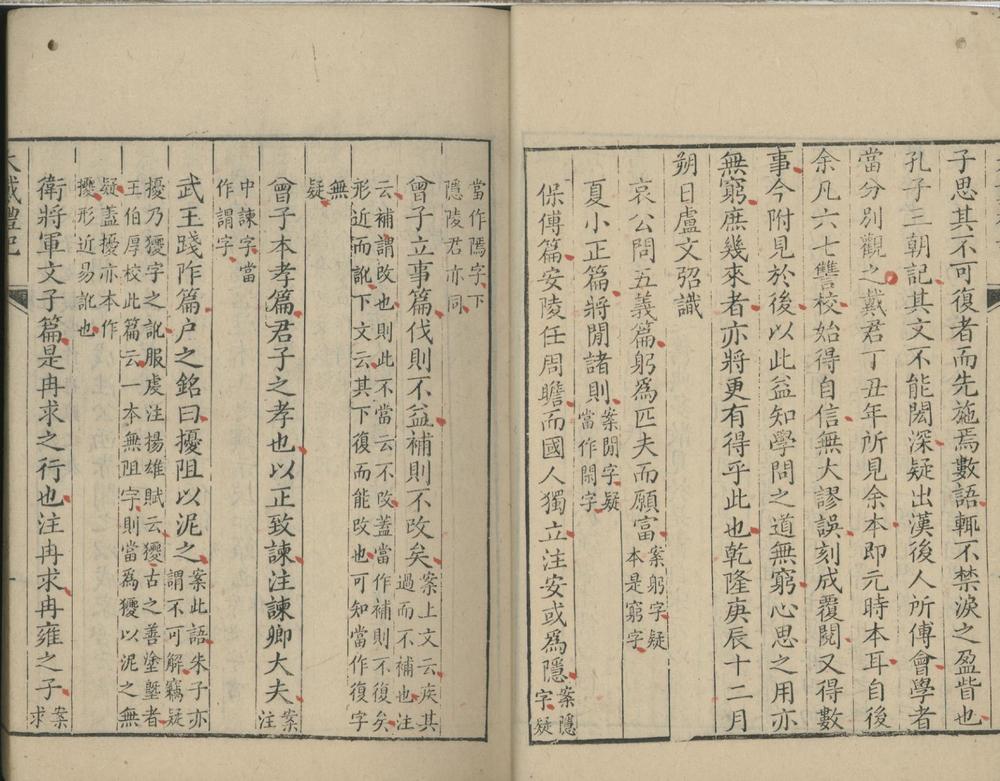 子思其不可復者而先施焉數語輒不禁淚之盈眥也
孔子三朝記其文不能閎深疑出漢後人所傅會學者
當分別觀之戴君丁丑年所見余本即元時本耳自後
余凡六七讐校始得自信無大謬誤刻成覆閱又得數
事今附見於後以此益知學問之道無窮心思之用亦
無窮庶幾來者亦將更有得乎此也乾隆庚辰十二月
朔日盧文弨識
哀公問五義篇躬爲匹夫而願富案躬字疑
本是窮字
夏小正篇將閒諸則案閒字疑
當作閑字
保傅篇安陵任周瞻而國人獨立注安或爲隱案隱
字疑
當作隱字下
隱陵君亦同
曾子立事篇伐則不益補則不改矣案上文云疾其
過而不補也注
云補謂改也則此不當云不改蓋當作補則不復矣
形近而訛下文云其下復而能改也可知當作復字
無
疑
曾子本孝篇君子之孝也以正致諫注諫卿大夫案
注
中諫字當
作謂字
武王踐阼篇戶之銘曰擾阻以泥之案此語朱子亦
謂不可解竊疑
擾乃獿字之訛服虔注揚雄賦云獿古之善塗塈者
王伯厚校此篇云一本無阻字則當爲獿以泥之無
疑蓋擾亦本作
擾形近易訛也
衛將軍文子篇是冉求之行也注冉求冉雍之子案
求